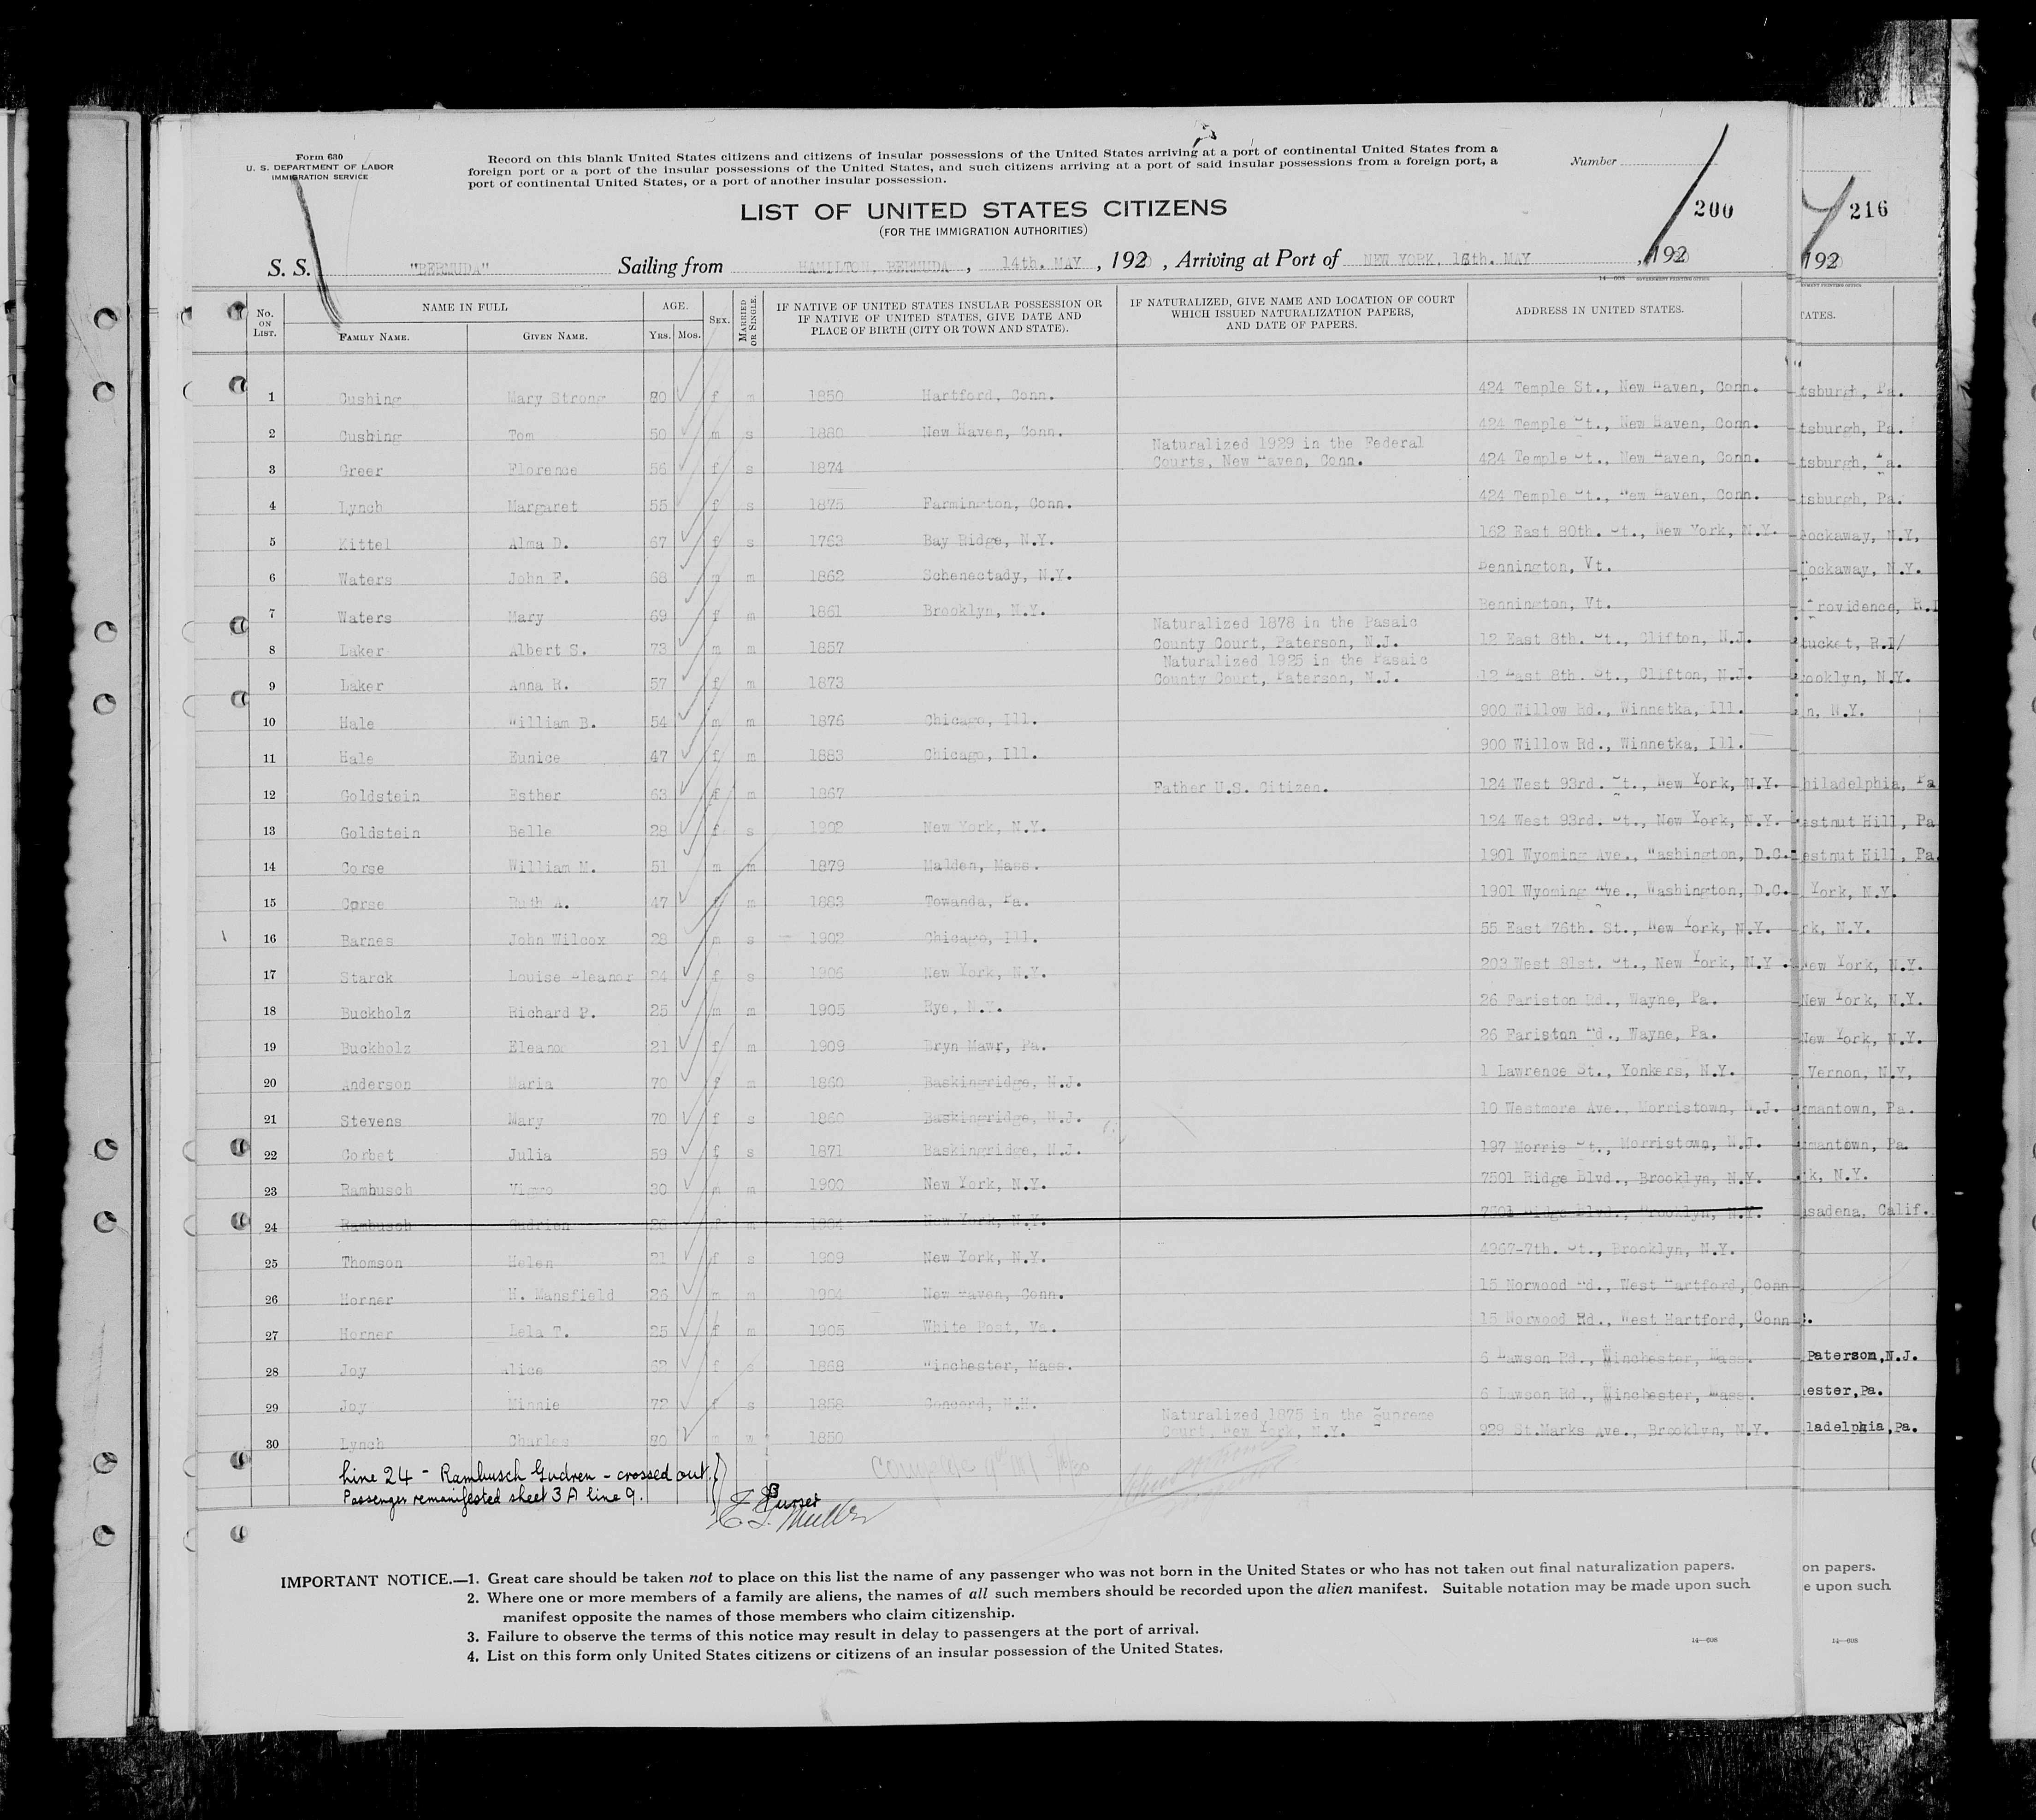 Form 630
U. S. DEPARTMENT OF LABOR
IMMIGRATION SERVICE
Record on this blank United States citizens and citizens of insular possessions of the United States arriving at a port of continental United States from a
foreign port or a port of the insular possessions of the United States, and such citizens arriving at a port of said insular possessions from a foreign port, a
port of continental United States, or a port of another insular possession.
Number
LIST OF UNITED STATES CITIZENS
(FOR THE IMMIGRATION AUTHORITIES)
200
216
S. S. "BERMUDA" Sailing from HAMILTON, BERMUDA , 14th. MAY , 1920 , Arriving at Port of NEW YORK, 16th. MAY , 192
1920
14—608 GOVERNMENT PRINTING OFFICE
No. ON LIST. NAME IN FULL FAMILY NAME. GIVEN NAME. AGE. YRS. MOS. SEX. MARRIED OR SINGLE. IF NATIVE OF UNITED STATES INSULAR POSSESSION OR IF NATIVE OF UNITED STATES, GIVE DATE AND PLACE OF BIRTH (CITY OR TOWN AND STATE). IF NATURALIZED, GIVE NAME AND LOCATION OF COURT WHICH ISSUED NATURALIZATION PAPERS, AND DATE OF PAPERS. ADDRESS IN UNITED STATES. TATES.
1 Cushing Mary Strong 80 f m 1850 Hartford, Conn. 424 Temple St., New Haven, Conn. tsburgh, Pa.
2 Cushing Tom 50 m s 1880 New Haven, Conn. 424 Temple St., New Haven, Conn. tsburgh, Pa.
3 Greer Florence 56 f s 1874 Naturalized 1929 in the Federal Courts, New Haven, Conn. 424 Temple St., New Haven, Conn. tsburgh, Pa.
4 Lynch Margaret 55 f s 1875 Farmington, Conn. 424 Temple St., New Haven, Conn. tsburgh, Pa.
5 Kittel Alma D. 67 f s 1763 Bay Ridge, N.Y. 162 East 80th. St., New York, N.Y. ockaway, N.Y,
6 Waters John F. 68 m m 1862 Schenectady, N.Y. Bennington, Vt. ockaway, N.Y.
7 Waters Mary 69 f m 1861 Brooklyn, N.Y. Bennington, Vt. rovidence, R.I
8 Laker Albert S. 73 m m 1857 Naturalized 1878 in the Pasaic County Court, Paterson, N.J. 12 East 8th. St., Clifton, N.J. tucket, R.I/
9 Laker Anna R. 57 f m 1873 Naturalized 1925 in the Pasaic County Court, Paterson, N.J. 12 East 8th. St., Clifton, N.J. ooklyn, N.Y.
10 Hale William B. 54 m m 1876 Chicago, Ill. 900 Willow Rd., Winnetka, Ill. n, N.Y.
11 Hale Eunice 47 f m 1883 Chicago, Ill. 900 Willow Rd., Winnetka, Ill.
12 Goldstein Esther 63 f m 1867 Father U.S. Citizen. 124 West 93rd. St., New York, N.Y. hiladelphia, Pa
13 Goldstein Belle 28 f s 1902 New York, N.Y. 124 West 93rd. St., New York, N.Y. estnut Hill, Pa
14 Corse William M. 51 m m 1879 Malden, Mass. 1901 Wyoming Ave., Washington, D.C. estnut Hill, Pa.
15 Corse Ruth A. 47 f m 1883 Towanda, Pa. 1901 Wyoming Ave., Washington, D.C. York, N.Y.
16 Barnes John Wilcox 28 m s 1902 Chicago, Ill. 55 East 76th. St., New York, N.Y. rk, N.Y.
17 Starck Louise Eleanor 24 f s 1906 New York, N.Y. 203 West 81st. St., New York, N.Y. New York, N.Y.
18 Buckholz Richard P. 25 m m 1905 Rye, N.Y. 26 Fariston Rd., Wayne, Pa. New York, N.Y.
19 Buckholz Eleano 21 f m 1909 Bryn Mawr, Pa. 26 Fariston Rd., Wayne, Pa. New York, N.Y.
20 Anderson Maria 70 f m 1860 Baskingridge, N.J. 1 Lawrence St., Yonkers, N.Y. Vernon, N.Y,
21 Stevens Mary 70 f s 1860 Baskingridge, N.J. 10 Westmore Ave., Morristown, N.J. mantown, Pa.
22 Corbet Julia 59 f s 1871 Baskingridge, N.J. 197 Morris St., Morristown, N.J. mantown, Pa.
23 Rambusch Viggo 30 m m 1900 New York, N.Y. 7501 Ridge Blvd., Brooklyn, N.Y. k, N.Y.
24 Rambusch Gudrien 26 f m 1904 New York, N.Y. 7501 Ridge Blvd., Brooklyn, N.Y. sadena, Calif.
25 Thomson Helen 21 f s 1909 New York, N.Y. 4967-7th. St., Brooklyn, N.Y.
26 Horner H. Mansfield 26 m m 1904 New Haven, Conn. 15 Norwood Rd., West Hartford, Conn
27 Horner Lela T. 25 f m 1905 White Post, Va. 15 Norwood Rd., West Hartford, Conn .
28 Joy Alice 62 f s 1868 Winchester, Mass. 6 Lawson Rd., Winchester, Mass. Paterson,N.J.
29 Joy Minnie 72 f s 1858 Concord, N.H. 6 Lawson Rd., Winchester, Mass. ester,Pa.
30 Lynch Charles 80 m w 1850 Naturalized 1875 in the Supreme Court, New York, N.Y. 929 St.Marks Ave., Brooklyn, N.Y. ladelphia,Pa.
Line 24 - Rambusch Gudren - crossed out.
Passenger remanifested sheet 3A line 9.
Purser
IMPORTANT NOTICE.—1. Great care should be taken not to place on this list the name of any passenger who was not born in the United States or who has not taken out final naturalization papers.
on papers.
2. Where one or more members of a family are aliens, the names of all such members should be recorded upon the alien manifest. Suitable notation may be made upon such
e upon such
manifest opposite the names of those members who claim citizenship.
3. Failure to observe the terms of this notice may result in delay to passengers at the port of arrival.
4. List on this form only United States citizens or citizens of an insular possession of the United States.
14—608
14—608